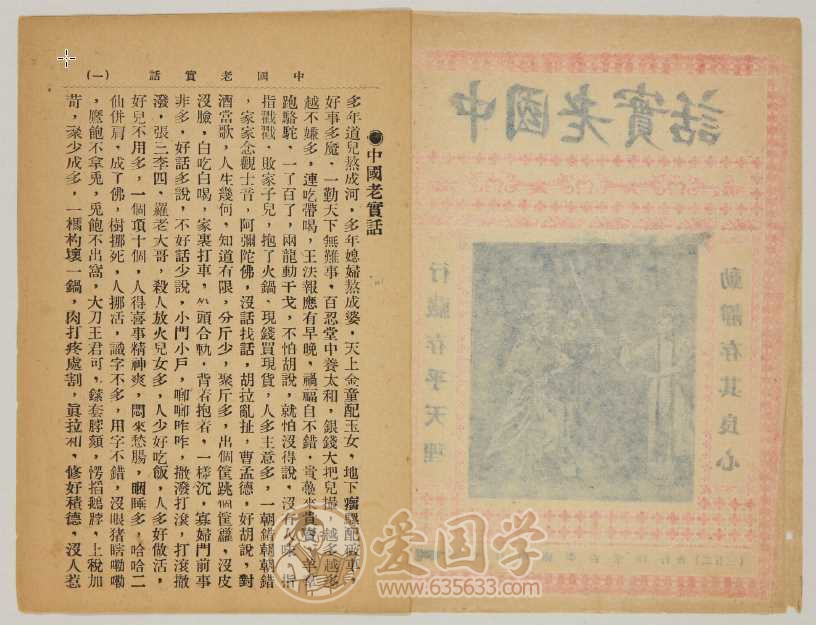 中國老實話 (一)
●中國老實話
多年道兒熬成河,多年媳婦熬成婆,天上金童配玉女,地下瘸驢配破車,
好事多魔,一勤天下無難事,百忍堂中養太和,銀錢大把兒撮,越多越多
越不嫌多,連吃帶喝,王法報應有早晚,禍福自不錯,賣羊羔
跑駱駝,一了百了,兩龍動干戈,不怕胡說,就怕沒得說,沒有人味,指
指戳戳,敗家子兒,抱了火鍋,現錢買現貨,人多主意多,一朝錯朝朝錯
,家家念觀士音,阿彌陀佛,沒話找話,胡拉亂扯,曹孟德,好胡說,對
酒當歌,人生幾何,知道有限,分斤少,聚斤多,出個筐跳個筐籮,沒皮
沒臉,白吃白喝,家裏打車,外頭合軌,背着抱着,一樣沉,寡婦門前事
非多,好話多說,不好話少說,小門小戶,唧唧咋咋,撒潑打滾,打滾撒
潑,張三李四,羅老大哥,殺人放火兒女多,人少好吃飯,人多好做活,
好兒不用多,一個項十個,人得喜事精神爽,悶來愁腸,瞌睡多,哈哈二
仙併肩,成了佛,樹挪死,人挪活,識字不多,用字不錯,沒眼猪瞎嘞嘞
,鷹飽不拿兎,兎飽不出窩,大刀王君可,套脖頦,愣掐鵝脖,上稅加
苛,聚少成多,一杓壞一鍋,肉打疼處割,眞拉,修好積德,沒人惹
中國老實話
動靜存其良心
行藏存乎天理
爱国学
www.635633.com